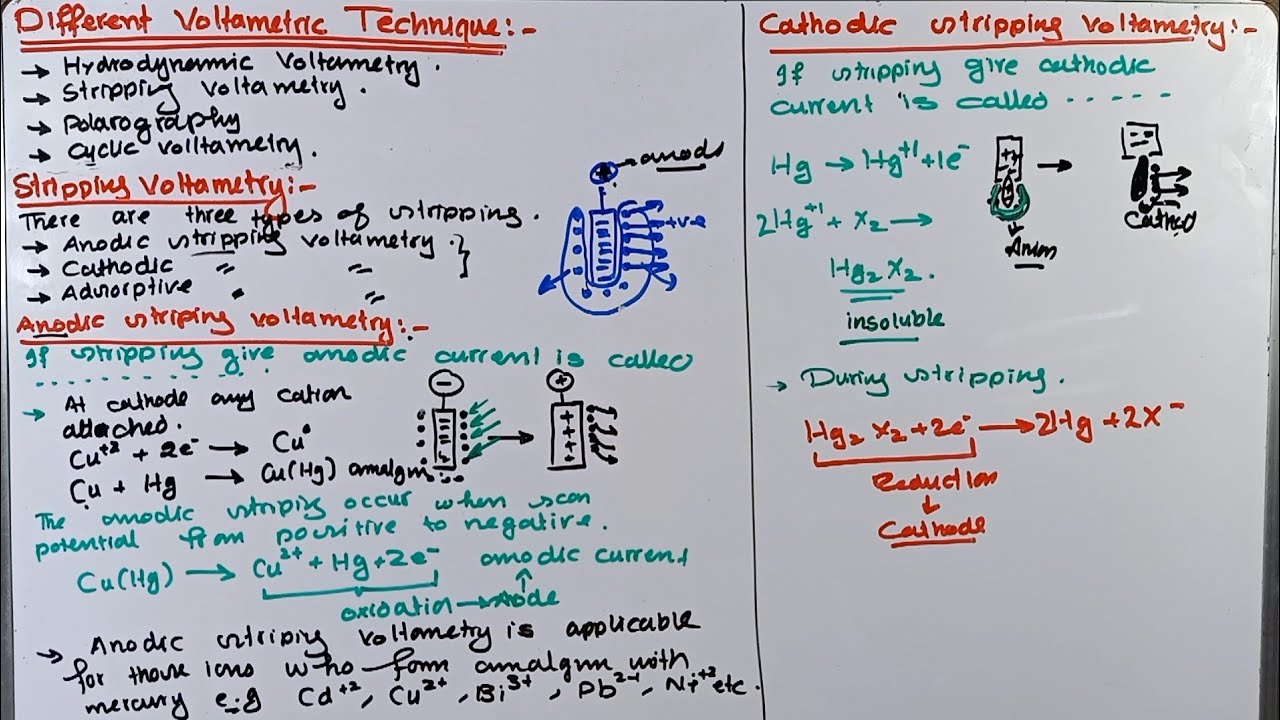 Different Voltametric Technique:-
→ Hydrodynamic Voltametry.
→ Stripping Voltametry.
→ Polarography
→ Cyclic volltametry.
Stripping Voltametry:-
There are three types of stripping.
→ Anodic stripping voltametry.
→ Cathodic 〃 〃
→ Adsorptive 〃 〃
+ → anode
+ve
Anodic striping voltametry:-
If stripping give anodic current is called
..............
→ At cathode any cation
attached.
Cu⁺² + 2e⁻ → Cu°
Cu + Hg → Cu(Hg) amalgm
The anodic striping occur when scan
potential from positive to negative.
Cu(Hg) → Cu²⁺ + Hg + 2e⁻ anodic current
oxidation → Aode
→ Anodic striping voltametry is applicable
for those ions who form amalgm with
mercury e.g Cd⁺², Cu²⁺, Bi³⁺, Pb²⁺, Ni⁺² etc.
Cathodic stripping Voltametry:-
If stripping give cathodic
current is called ......
Hg → Hg⁺¹ + 1e⁻
2Hg⁺¹ + X₂ →
Hg₂X₂.
insoluble
Anion
Cathod
→ During stripping.
Hg₂X₂ + 2e⁻ → 2Hg + 2X⁻
Reduction
↓
Cathode